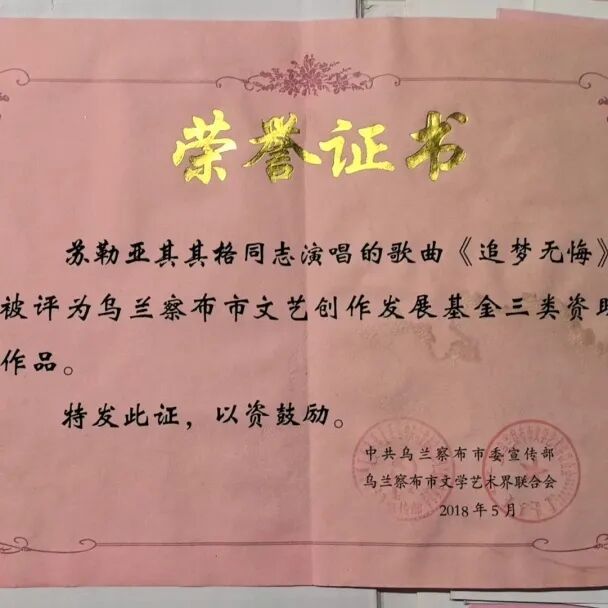 荣誉证书
苏勒亚其其格同志演唱的歌曲《追梦无悔》
被评为乌兰察布市文艺创作发展基金三类资助
作品。
特发此证，以资鼓励。
中共乌兰察布市委宣传部
乌兰察布市文学艺术界联合会
2018年5月